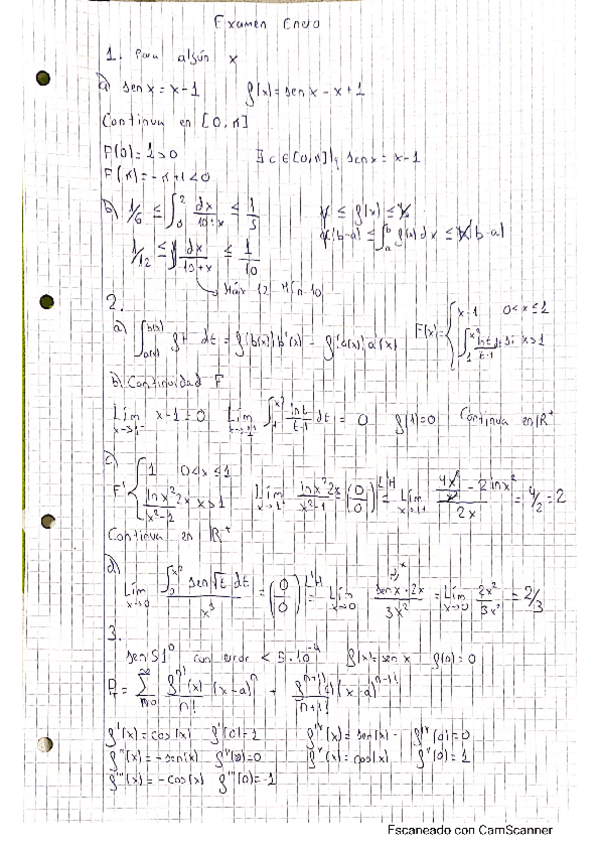 Examen Enero
1. Para algún x
a) sen x = x-1   f(x) = sen x - x + 1
Continua en [0, π]
F(0) = 1 > 0   ∃ c ∈ [0, π] | sen x = x-1
F(π) = -π + 1 < 0
b) 1/6 ≤ ∫₀² dx/(10+x) ≤ 1/5   ≤ f(x) ≤
(b-a) ≤ ∫ₐᵇ f(x) dx ≤ (b-a)
1/12 ≤ dx/(10+x) ≤ 1/10
Máx 12 Mín 10
2.
a) ∫ₐ₍ₓ₎ᵇ⁽ˣ⁾ ft dt = f(b(x)) b'(x) - f(a(x)) a'(x)   F(x) = { x-1   0 < x ≤ 1
∫₁^x² ln t/(t-1) dt si x > 1
b) Continuidad F
Lim x-1 = 0   Lim ∫₁^x² ln t/(t-1) dt = 0   f(1) = 0   Continua en ℝ⁺
c)
F' { 1   0 < x ≤ 1
ln x² 2x/(x²-1) x > 1   Lim ln x² 2x/(x²-1) = (0/0) L'H = Lim = 4/2 = 2
Continua en ℝ⁺
d)
Lim x→0 ∫₀^x² sen√t dt / x³ = (0/0) L'H = Lim x→0 sen x · 2x / 3x² = Lim x→0 2x²/3x² = 2/3
3.
sen 51° con error < 5·10⁻⁴   f(x) = sen x   f(0) = 0
f'(x) = cos(x)   f'(0) = 1   fᴵⱽ(x) = sen(x)   fᴵⱽ(0) = 0
f''(x) = -sen(x)   f''(0) = 0   fⱽ(x) = cos(x)   fⱽ(0) = 1
f'''(x) = -cos(x)   f'''(0) = -1
Escaneado con CamScanner